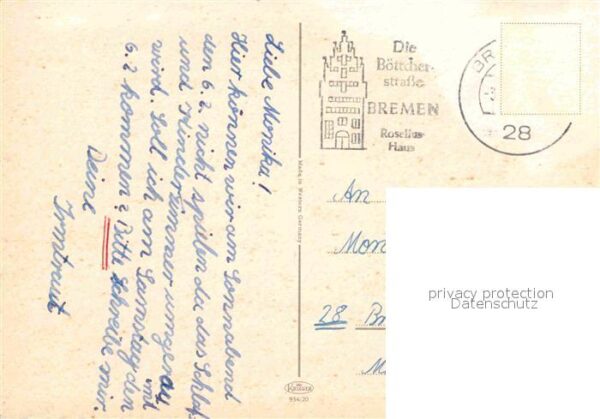 Liebe Monika!
Hier können wir am Sonnabend
den 6.2. nicht spielen da das Schlaf
und Kinderzimmer umgeräumt
wird. Soll ich am Samstag den
6.2 kommen? Bitte schreibe mir.
Deine
Irmtraut
Die
Böttcher-
straße
BREMEN
Roselius-
Haus
BR
28
Made in Western Germany
An
Mon
28 Br
Krüger
934/20
privacy protection
Datenschutz